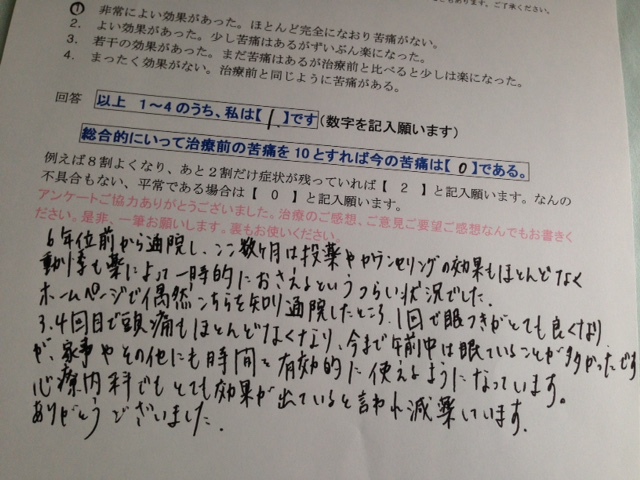 ございます。ご了承ください。
① 非常によい効果があった。ほとんど完全になおり苦痛がない。
2. よい効果があった。少し苦痛はあるがずいぶん楽になった。
3. 若干の効果があった。まだ苦痛はあるが治療前と比べると少しは楽になった。
4. まったく効果がない。治療前と同じように苦痛がある。
回答 以上 1~4のうち、私は【 1 】です(数字を記入願います)
総合的にいって治療前の苦痛を10とすれば今の苦痛は【 0 】である。
例えば8割よくなり、あと2割だけ症状が残っていれば【 2 】と記入願います。なんの
不具合もない、平常である場合は【 0 】と記入願います。
アンケートご協力ありがとうございました。治療のご感想、ご意見ご要望ご感想なんでもお書きく
ださい。是非、一筆お願いします。裏もお使いください。
6年位前から通院し、ここ数ヶ月は投薬やカウンセリングの効果もほとんどなく
動悸も薬によって一時的におさえるというつらい状況でした。
ホームページで偶然こちらを知り通院したところ、1回で眠つきがとても良くなり
3.4回目で頭痛もほとんどなくなり、今まで午前中は眠ていることが多かったです
が、家事やその他にも時間を有効的に使えるようになっています。
心療内科でもとても効果が出ていると言われ減薬しています。
ありがとうございました。